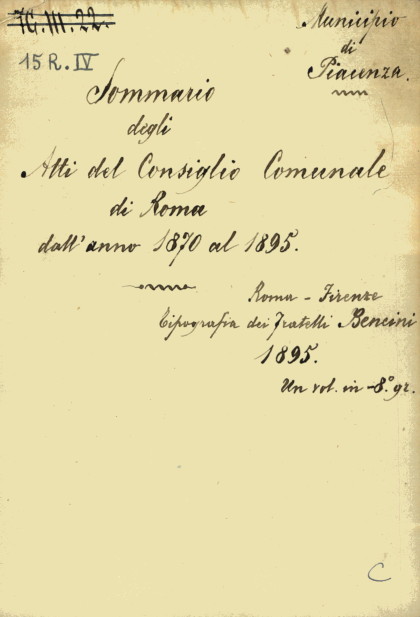 7G.III.22.
15 R. IV
Municipio
di
Piacenza.
Sommario
degli
Atti del Consiglio Comunale
di Roma
dall'anno 1870 al 1895.
Roma - Firenze
Tipografia dei Fratelli Bencini
1895.
Un vol. in -8.° gr.
C